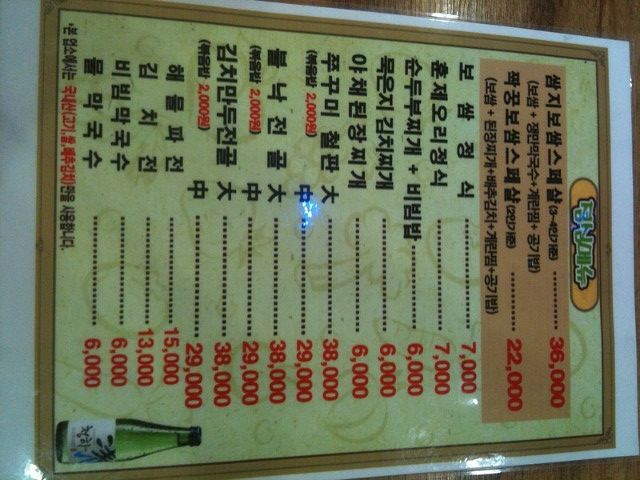 점심메뉴
쌈지보쌈스페샬(3~4인기준) 36,000
(보쌈 + 쟁반막국수+계란찜+공기밥)
짝꿍보쌈스페샬(2인기준) 22,000
(보쌈 + 된장찌개+배추김치+계란찜+공기밥)
보쌈정식 7,000
훈제오리정식 7,000
순두부찌개 + 비빔밥 6,000
묵은지 김치찌개 6,000
야채된장찌개 6,000
쭈꾸미 철판 大 38,000
(볶음밥 2,000원) 中 29,000
불낙전골 大 38,000
(볶음밥 2,000원) 中 29,000
김치만두전골 大 38,000
(볶음밥 2,000원) 中 29,000
해물파전 15,000
김치전 13,000
비빔막국수 6,000
물막국수 6,000
*본 업소에서는 국내산(고기,쌀,배추김치)만을 사용합니다.